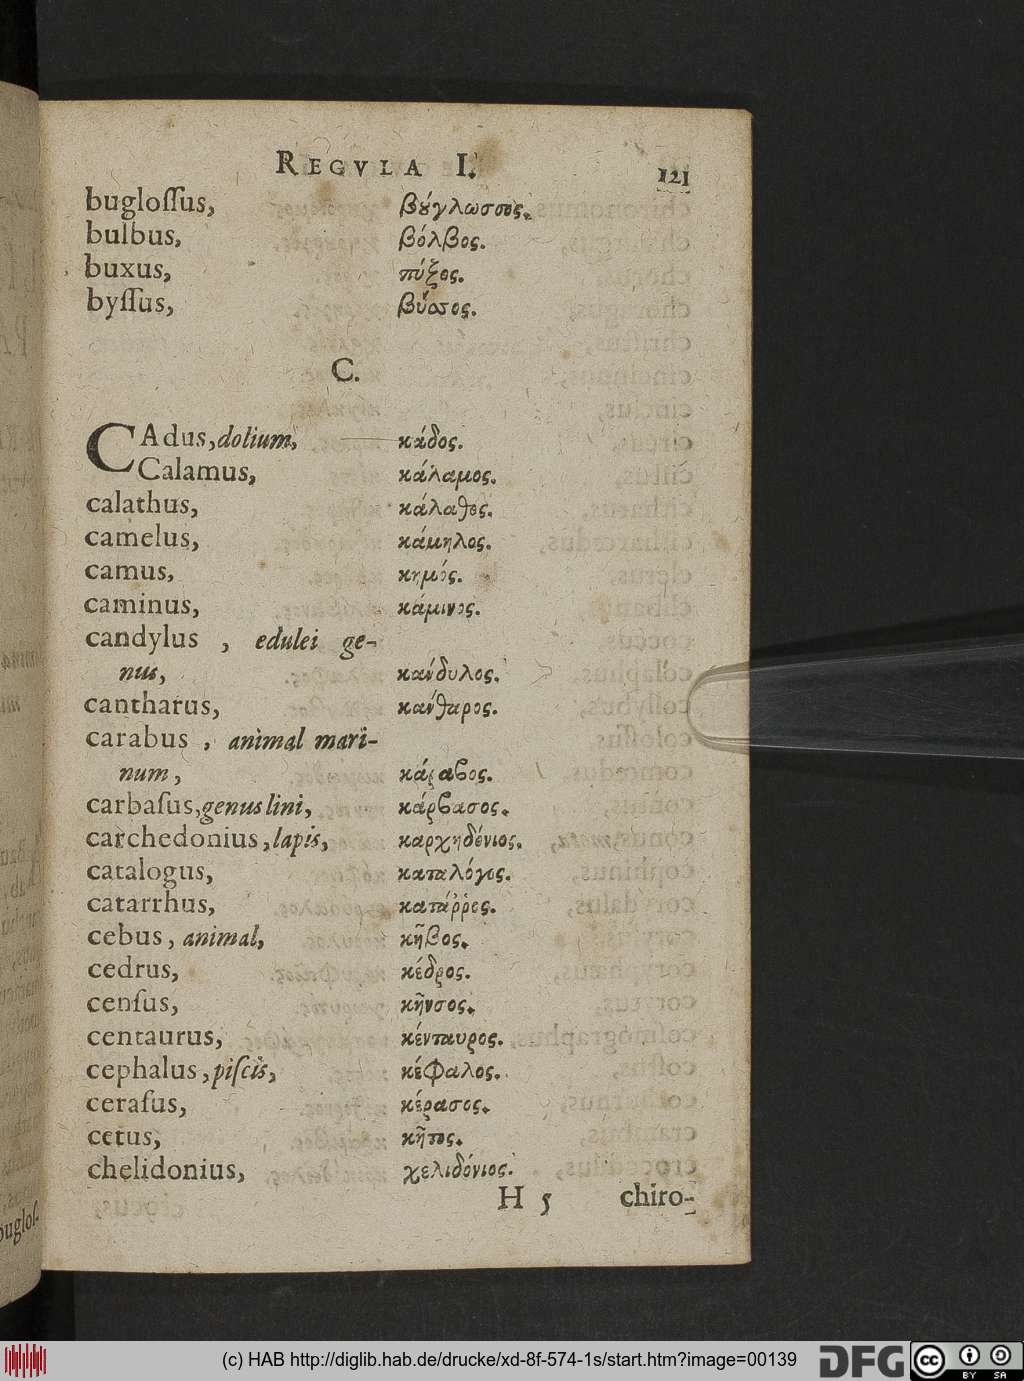 REGVLA I. 121
bugloſſus, βύγλωσσος.
bulbus, βόλβος.
buxus, πύξος.
byſſus, βύσσος.
C.
CAdus, dolium, κάδος.
Calamus, κάλαμος.
calathus, κάλαθος.
camelus, κάμηλος.
camus, κημός.
caminus, κάμινος.
candylus , edulei ge-
nus, κάνδυλος.
cantharus, κάνθαρος.
carabus , animal mari-
num, κάραβος.
carbaſus, genus lini, κάρβασος.
carchedonius, lapis, καρχηδόνιος.
catalogus, καταλόγος.
catarrhus, κατάῤῥος.
cebus, animal, κῆβος.
cedrus, κέδρος.
cenſus, κῆνσος.
centaurus, κένταυρος.
cephalus, piſcis, κέφαλος.
ceraſus, κέρασος.
cetus, κῆτος.
chelidonius, χελιδόνιος.
H 5 chiro-
bugloſ-
(c) HAB http://diglib.hab.de/drucke/xd-8f-574-1s/start.htm?image=00139
DFG
cc BY SA